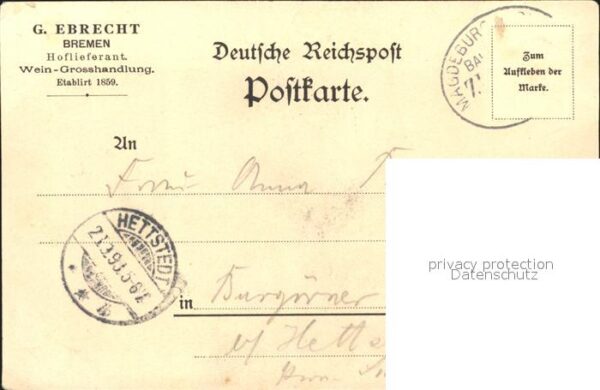 G. EBRECHT
BREMEN
Hoflieferant.
Wein-Grosshandlung.
Etablirt 1859.
Deutsche Reichspost
Postkarte.
MAGDEBURG
BA
Zum
Aufkleben der
Marke.
An
Frau Anna
HETTSTEDT
in Burgörner
b/ Hetts
privacy protection
Datenschutz